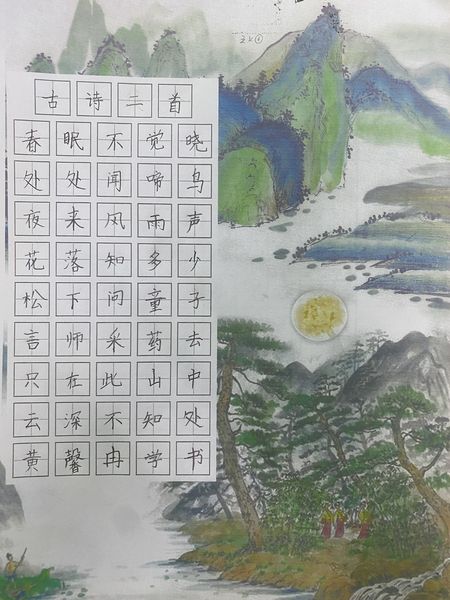 古诗二首
春眠不觉晓
处处闻啼鸟
夜来风雨声
花落知多少
松下问童子
言师采药去
只在此山中
云深不知处
黄馨冉学书